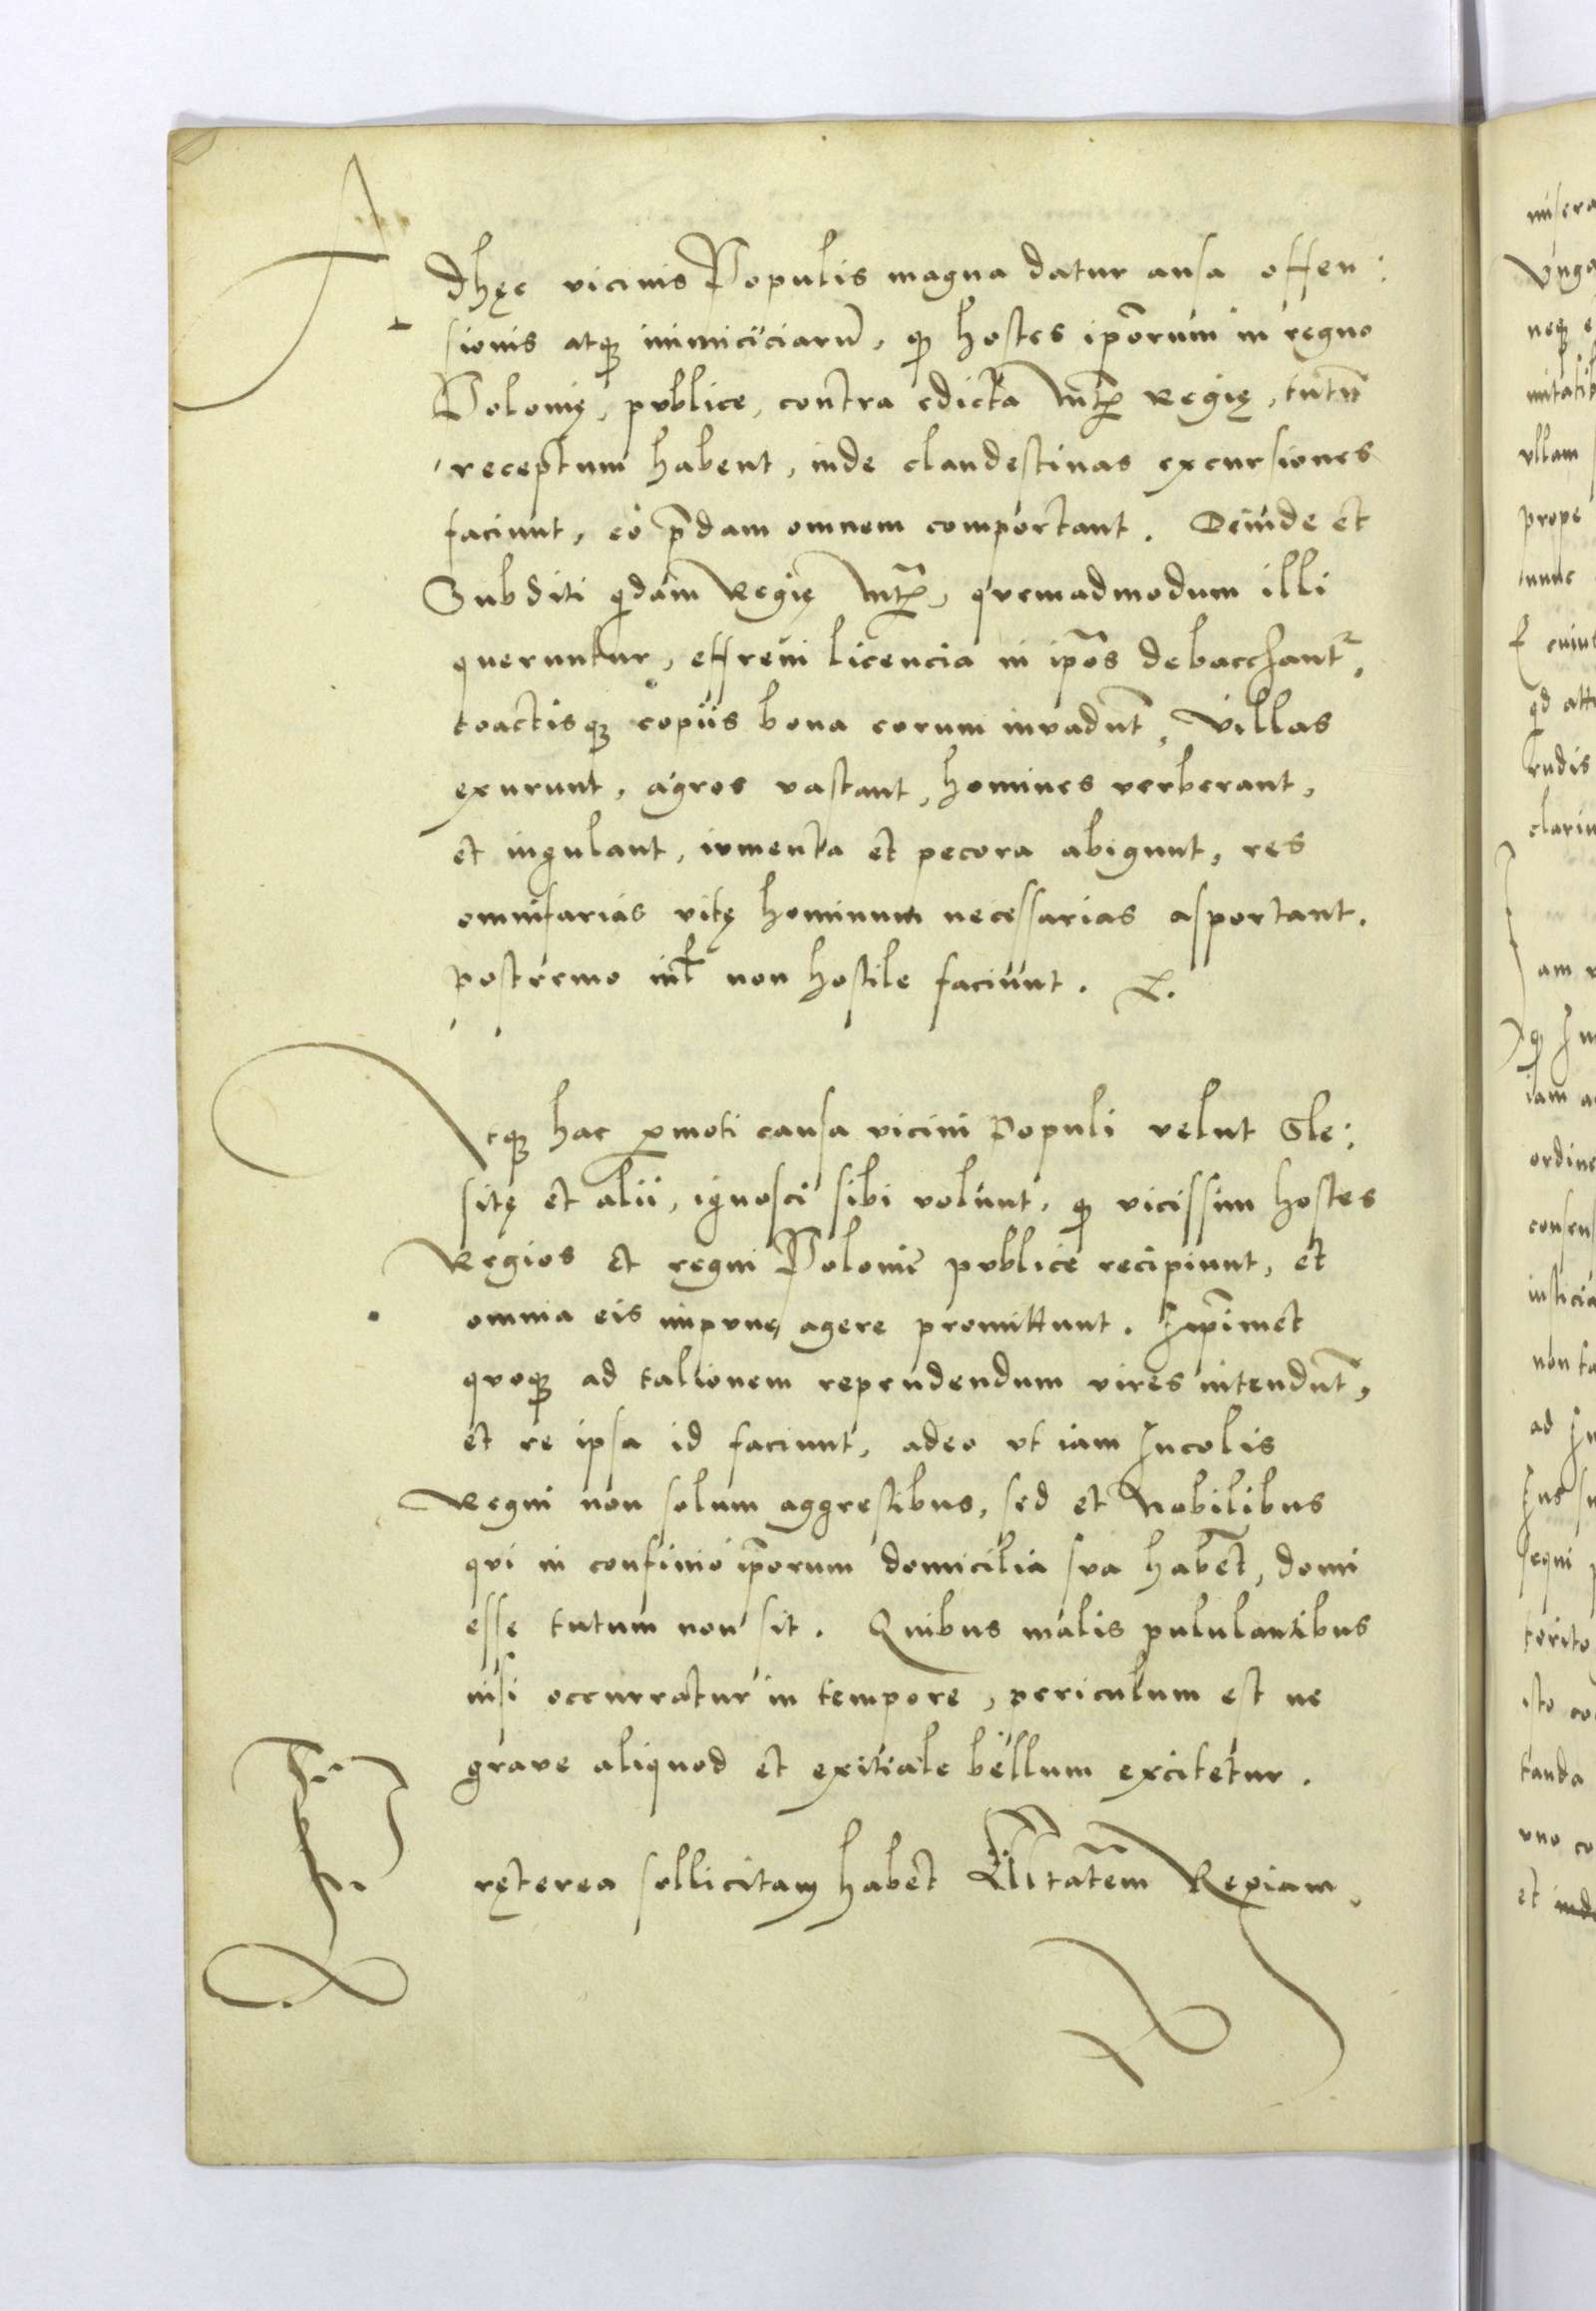 Adhęc vicinis Populis magna datur ansa offen:
sionis atq; inimiciciarū, q̨ hostes ipōrum in regno
Polonię, publice, contra edicta Mtis Regię, tutū
receptum habent, inde clandestinas excursiones
faciunt, eò p̄dam omnem comportant. Deinde et
Subditi qdam Regię Mtis, quemadmodum illi
queruntur, effreni licencia in ip̄os debacchant᷑,
coactisq; copiis bona eorum invadūt, Villas
exurunt, agros vastant, homines verberant,
et iugulant, iumenta et pecora abigunt, res
omnifarias vitę hominum necessarias asportant.
Postremo nīl non hostile faciunt.
Atq; hac pmoti causa vicini Populi velut Sle:
sitę et alii, ignosci sibi volunt, q̨ vicissim hostes
Regios et regni Polonię publice recipiunt, et
omnia eis impune agere promittunt. Ip̄imet
quoq; ad talionem rependendum vires intendūt,
et re ipsa id faciunt, adeo ut iam Incolis
Regni non solum aggrestibus, sed et Nobilibus
qui in confinio ip̄orum domicilia sua habēt, domi
esse tutum non sit. Quibus malis pululantibus
nisi occurratur in tempore, periculum est ne
grave aliquod et exitiale bellum excitetur.
Pręterea sollicitam habet Mtatem Regiam,
misera
Unga
neq; e
mitatib
ullam
prope
nunc
E cuius
qd atti
rudis
clariu
am
q̨ In
iam a
ordine
consens
iusticia
non ta
ad In
Ius su
sequi
torito
isto co
tanda
uno co
et